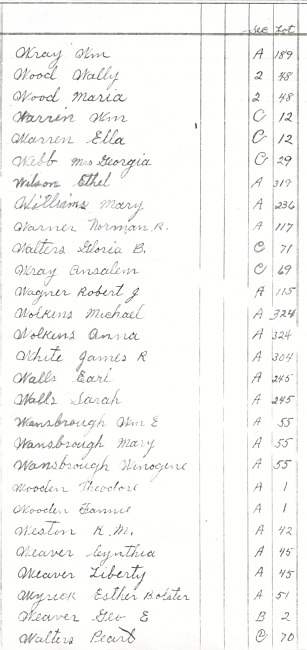 Sec Lot
Wray Wm A 189
Wood Wally 2 48
Wood Maria 2 48
Warren Wm C 12
Warren Ella C 12
Webb Mrs Georgia C 29
Wilson Ethel A 319
Williams Mary A 236
Warner Norman R. A 117
Walters Gloria B. C 71
Wray Ansalem C 69
Wagner Robert J A 115
Wolkins Michael A 324
Wolkins Anna A 324
White James R A 304
Walls Earl A 245
Walls Sarah A 245
Wansbrough Wm E A 55
Wansbrough Mary A 55
Wansbrough Winogene A 55
Wooden Theodore A 1
Wooden Fannie A 1
Weston R.M. A 42
Weaver Cynthia A 45
Weaver Liberty A 45
Wyrick Esther Bolster A 51
Weaver Geo E B 2
Walters Pearl C 70